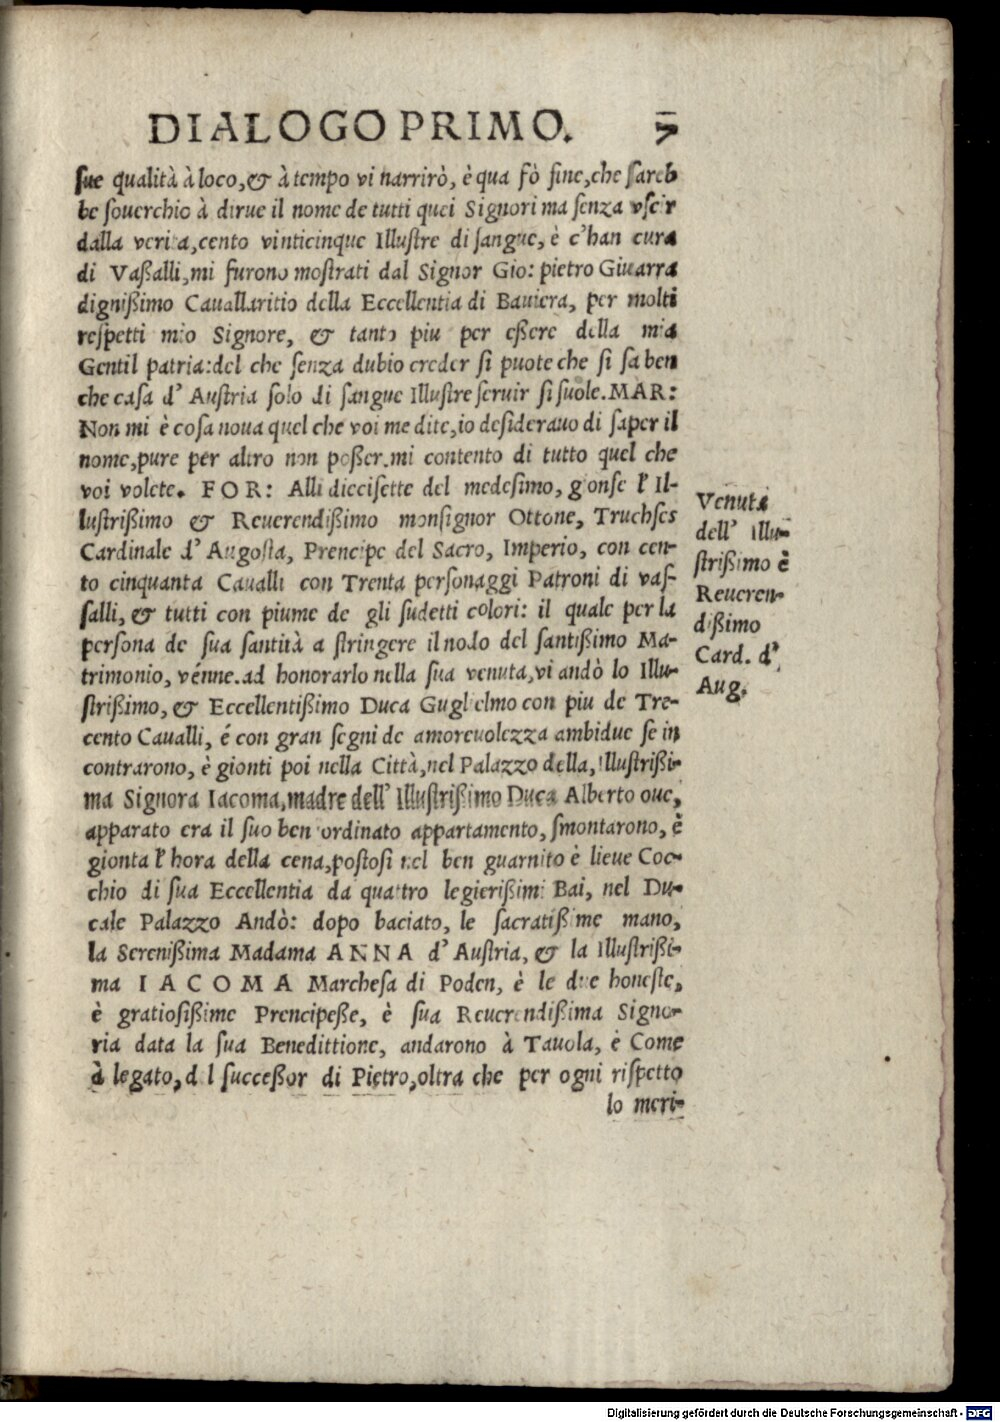 DIALOGO PRIMO. 7
sue qualità à loco, & à tempo vi narrirò, è qua fò fine, che sareb
be souerchio à dirue il nome de tutti quei Signori ma senza vscir
dalla verita, cento vinticinque Illustre di sangue, è c'han cura
di Vaßalli, mi furono mostrati dal Signor Gio: pietro Giuarra
dignißimo Cauallaritio della Eccellentia di Bauiera, per molti
respetti mio Signore, & tanto piu per eßere della mia
Gentil patria: del che senza dubio creder si puote che si sa ben
che casa d' Austria solo di sangue Illustre seruir si suole. MAR:
Non mi è cosa noua quel che voi me dite, io desiderauo di saper il
nome, pure per altro non poßer. mi contento di tutto quel che
voi volete. FOR: Alli diecisette del medesimo, gionse l' Il-
lustrißimo & Reuerendißimo monsignor Ottone, Truchses
Cardinale d' Augosta, Prencipe del Sacro, Imperio, con cen-
to cinquanta Caualli con Trenta personaggi Patroni di vas-
salli, & tutti con piume de gli sudetti colori: il quale per la
persona de sua santità a stringere il nodo del santißimo Ma-
trimonio, vénne. ad honorarlo nella sua venuta, vi andò lo Illu-
strißimo, & Eccellentißimo Duca Guglielmo con piu de Tre-
cento Caualli, é con gran segni de amoreuolezza ambidue se in
contrarono, è gionti poi nella Città, nel Palazzo della, illustrißi-
ma Signora Iacoma, madre dell' Illustrißimo Duca Alberto oue,
apparato era il suo ben ordinato appartamento, smontarono, è
gionta l' hora della cena, postosi nel ben guarnito è lieue Coc-
chio di sua Eccellentia da quattro legierißimi Bai, nel Du-
cale Palazzo Andò: dopo baciato, le sacratißime mano,
la Serenißima Madama ANNA d' Austria, & la Illustrißi-
ma IACOMA Marchesa di Poden, è le due honeste,
è gratiosißime Prencipeße, è sua Reuerendißima Signo-
ria data la sua Benedittione, andarono à Tauola, è Come
à legato, d l succeßor di Pietro, oltra che per ogni rispetto
lo meri-
Venuta
dell' Illu-
strißimo è
Reueren-
dißimo
Card. d'
Aug.
Digitalisierung gefördert durch die Deutsche Forschungsgemeinschaft - DFG